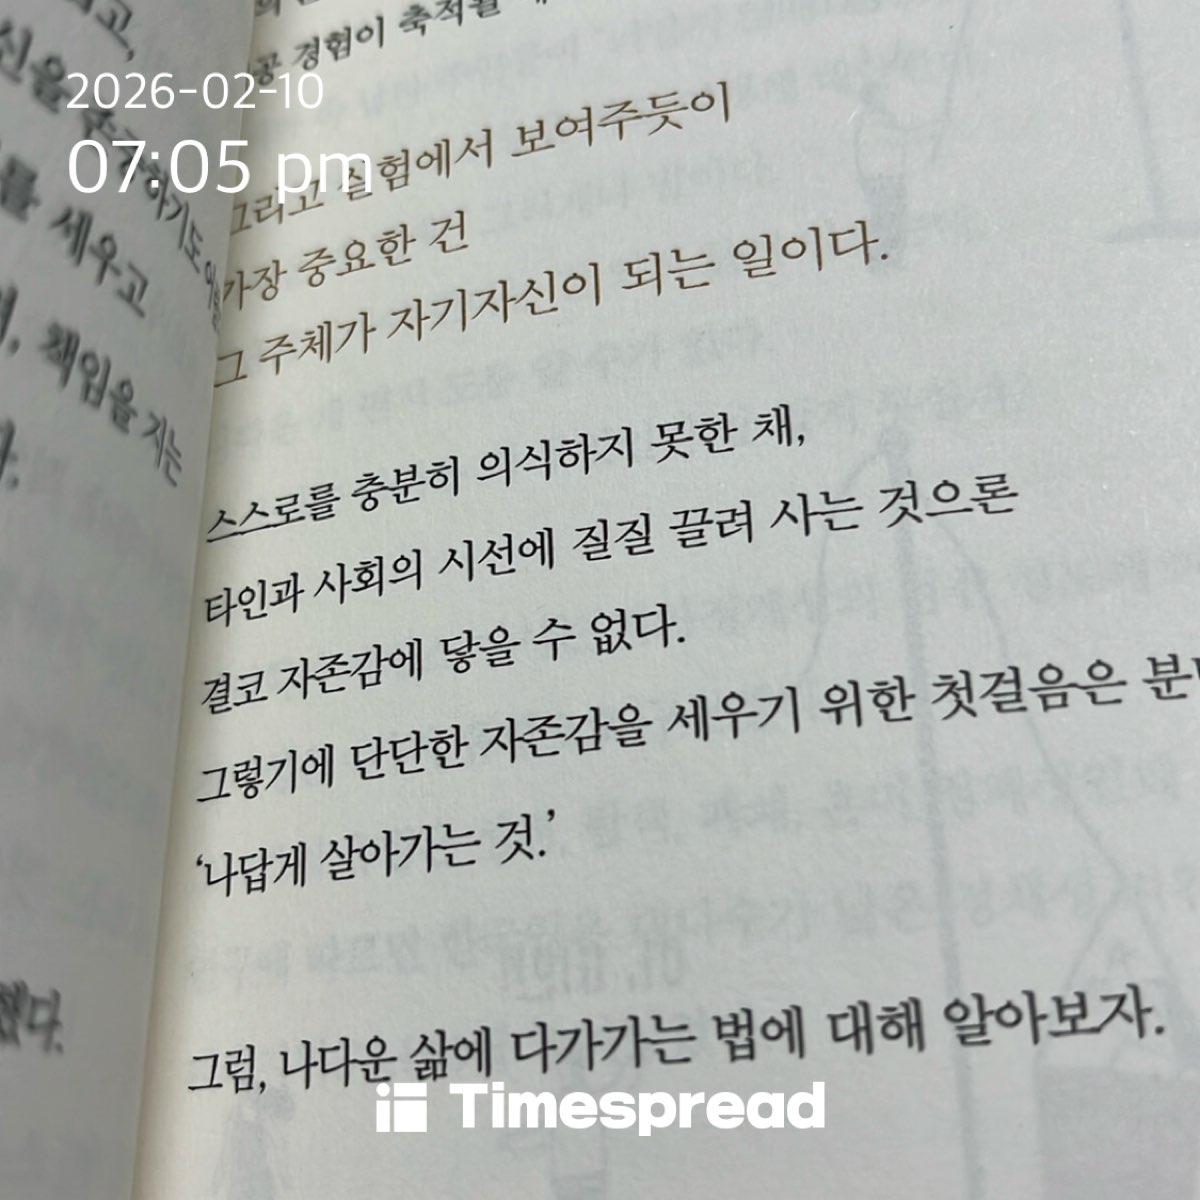 2026-02-10
07:05 pm
고,
신을
하기도
를 세우고
책임을 지는
했다.
공 경험이 축적될
그리고 실험에서 보여주듯이
가장 중요한 건
그 주체가 자기자신이 되는 일이다.
스스로를 충분히 의식하지 못한 채,
타인과 사회의 시선에 질질 끌려 사는 것으론
결코 자존감에 닿을 수 없다.
그렇기에 단단한 자존감을 세우기 위한 첫걸음은
‘나답게 살아가는 것.’
그럼, 나다운 삶에 다가가는 법에 대해 알아보자.
Timespread